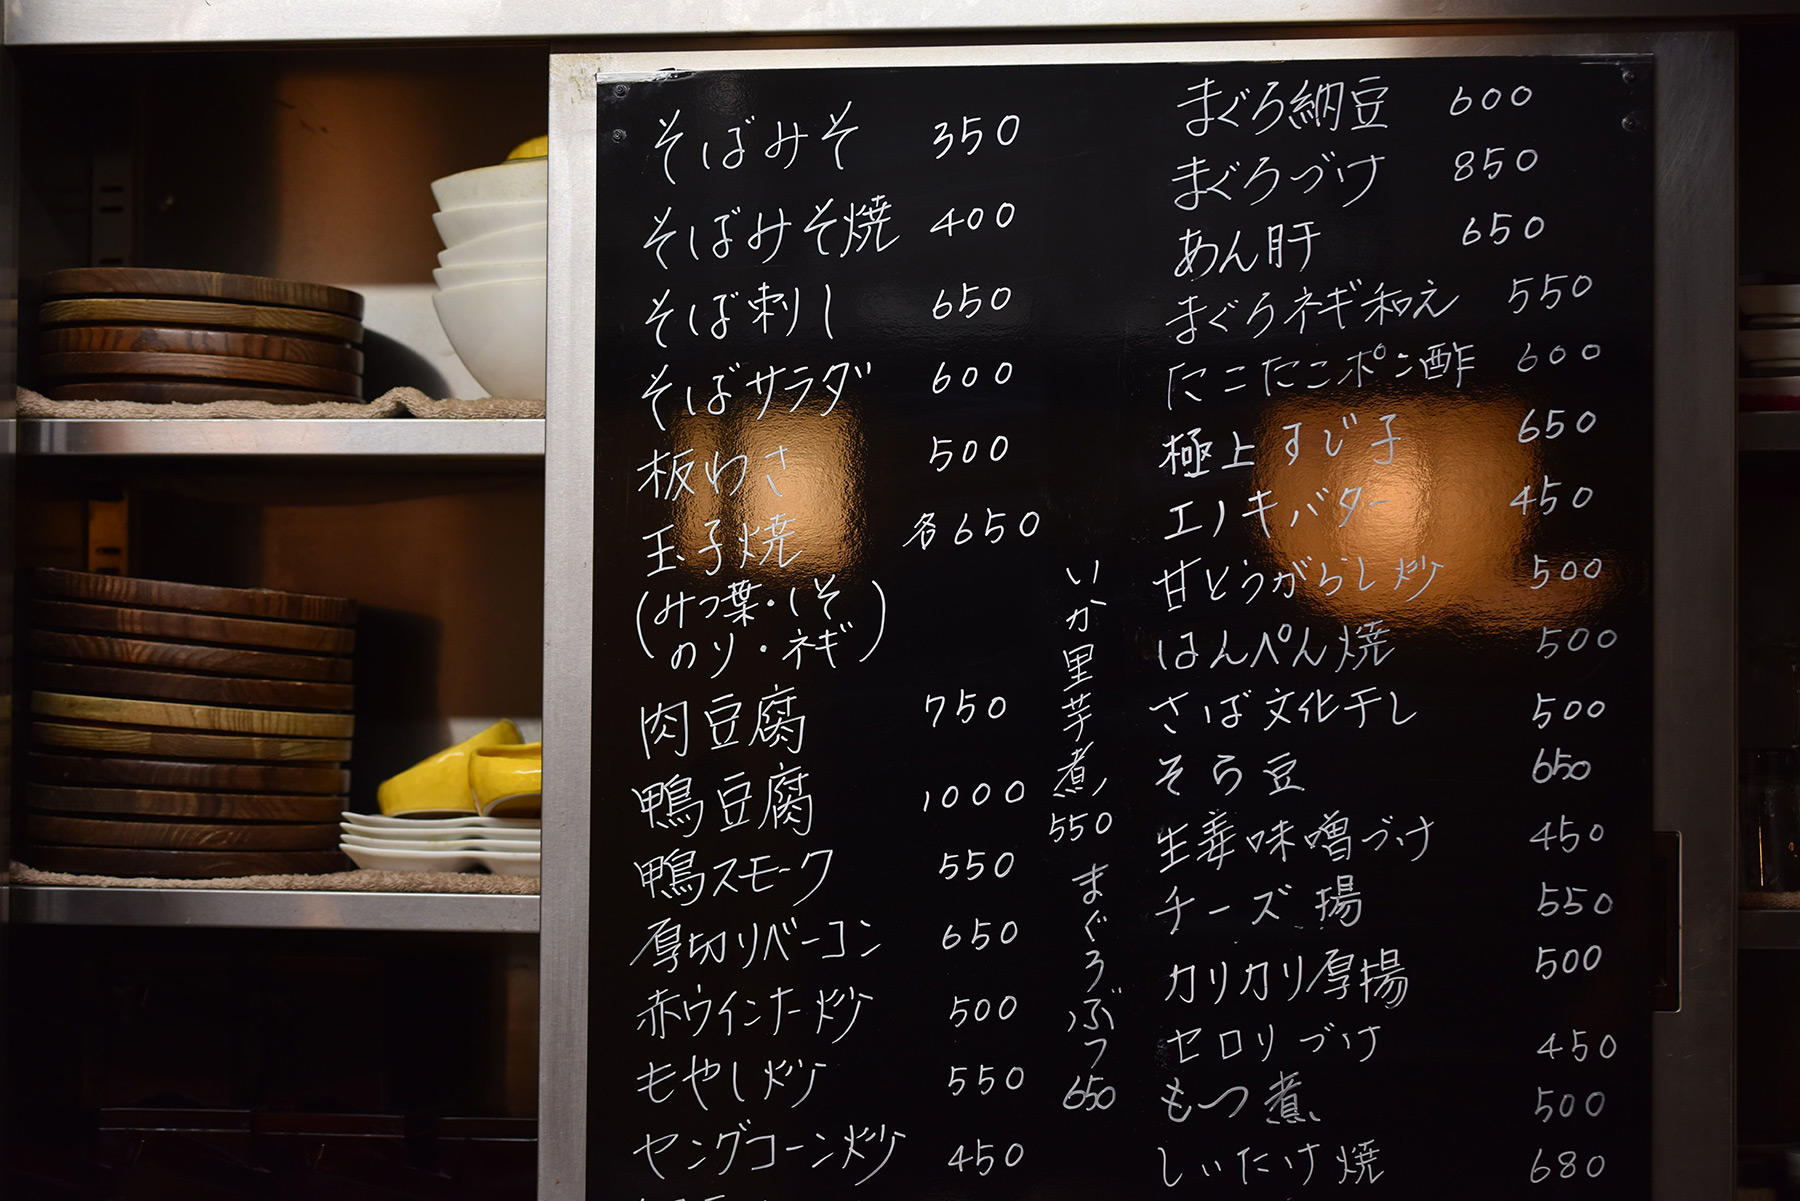 そばみそ 350
そばみそ焼 400
そば刺し 650
そばサラダ 600
板わさ 500
玉子焼 各650
(みつ葉・いそ
のり・ネギ)
肉豆腐 750
鴨豆腐 1000
鴨スモーク 550
厚切りベーコン 650
赤ウインナー炒 500
もやし炒 550
ヤングコーン炒 450
いか里芋煮 550
まぐろぶつ 650
まぐろ納豆 600
まぐろづけ 850
あん肝 650
まぐろネギ和え 550
たこたこポン酢 600
極上すじ子 650
エノキバター 450
甘とうがらし炒 500
はんぺん焼 500
さば文化干し 500
そら豆 650
生姜味噌づけ 450
チーズ揚 550
カリカリ厚揚 500
セロリづけ 450
もつ煮 500
しいたけ焼 680